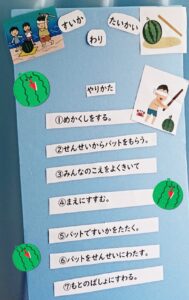 すいか
わり
たいかい
やりかた
①めかくしをする。
②せんせいからバットをもらう。
③みんなのこえをよくきいて
④まえにすすむ。
⑤バットですいかをたたく。
⑥バットをせんせいにわたす。
⑦もとのばしょにすわる。